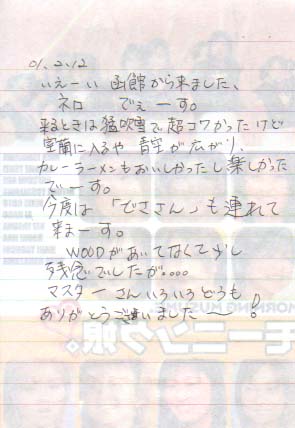 01.2.12
いえーい 函館から来ました、
ネロ でぇーす。
来るときは猛吹雪で超コワかったけど
室蘭に入るや 青空が広がり、
カレーラーメンもおいしかったし楽しかった
でーす。
今度は「どささん」も連れて
来まーす。
WOODがあいてなくて少し
残念でしたが....
マスターさんいろいろどうも
ありがとうございました〜!
MORNING MUSUME
モーニング娘。